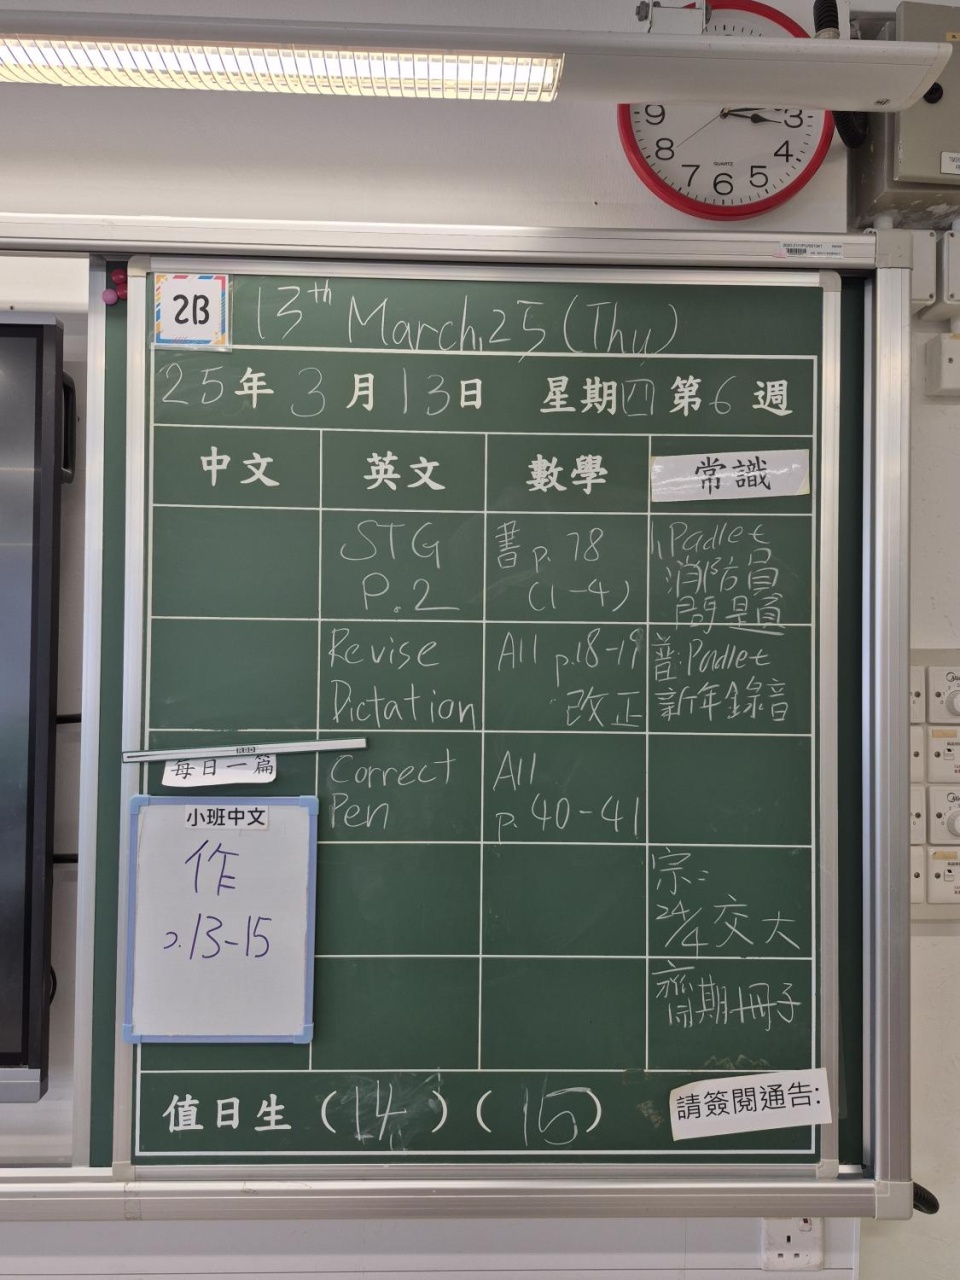 2B
13th March, 25 (Thu)
25年 3月 13日 星期四 第6週
中文 英文 數學 常識
STG
P.2
書 p.78
(1-4)
Padlet
消防員
問題
Revise
Dictation
All p.18-19
改正
普:Padlet
新年錄音
每日一篇
Correct
Pen
All
p.40-41
小班中文
作
p.13-15
宗:
24/4 交大
齊期冊子
值日生 (14) (15)
請簽閱通告:
9 3
8 4
7 6 5
QUARTZ